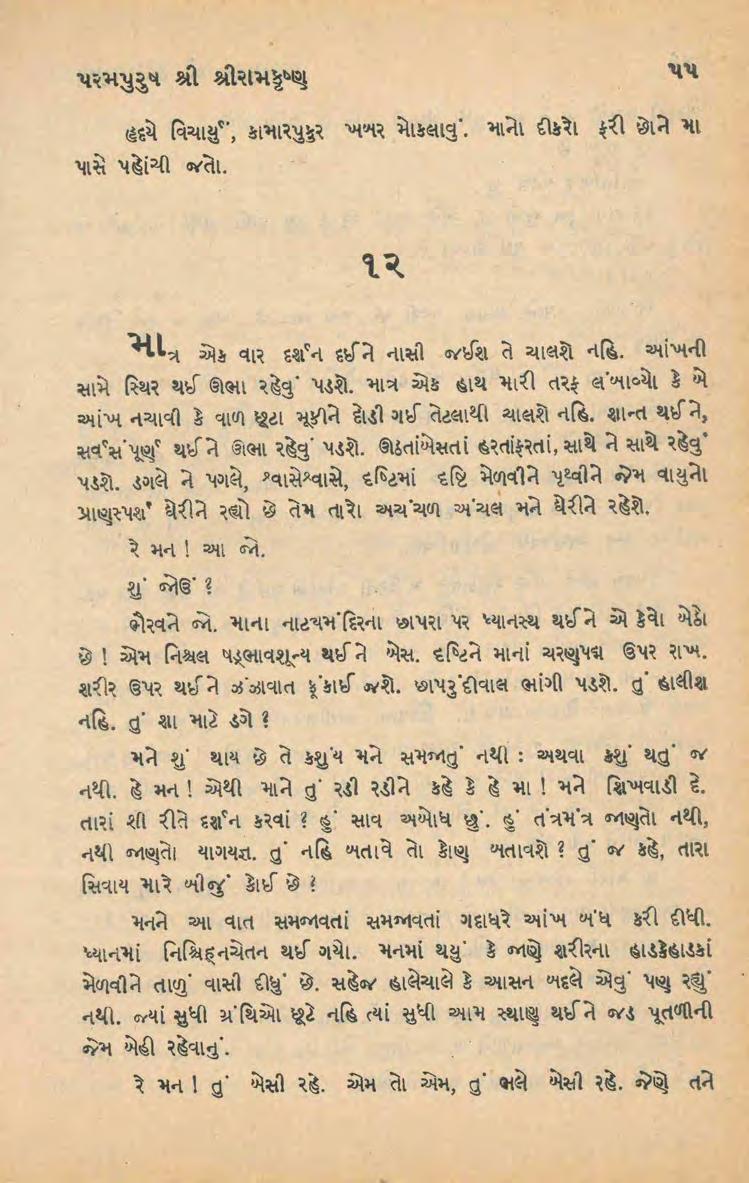 પરમપુરુષ શ્રી શ્રીરામકૃષ્ણ ૫૫
હૃદયે વિચાર્યું, કામારપુકુર ખબર મોકલાવું. માનો દીકરો ફરી છોને મા
પાસે પહોંચી જતો.
૧૨
માત્ર એક વાર દર્શન દઈને નાસી જઈશ તે ચાલશે નહિ. આંખની
સામે સ્થિર થઈ ઊભા રહેવું પડશે. માત્ર એક હાથ મારી તરફ લંબાવ્યો કે બે
આંખ નચાવી કે વાળ છૂટા મૂકીને દોડી ગઈ તેટલાથી ચાલશે નહિ. શાન્ત થઈને,
સર્વસંપૂર્ણ થઈને ઊભા રહેવું પડશે. ઊઠતાંબેસતાં હરતાંફરતાં, સાથે ને સાથે રહેવું
પડશે. ડગલે ને પગલે, શ્વાસેશ્વાસે, દૃષ્ટિમાં દૃષ્ટિ મેળવીને પૃથ્વીને જેમ વાયુનો
પ્રાણસ્પર્શ ઘેરીને રહ્યો છે તેમ તારો અચંચળ અંચલ મને ઘેરીને રહેશે.
રે મન ! આ જો.
શું જોઉં ?
ભૈરવને જો. માના નાટ્યમંદિરના છાપરા પર ધ્યાનસ્થ થઈને એ કેવો બેઠો
છે ! એમ નિશ્ચલ ષડ્ભાવશૂન્ય થઈને બેસ. દૃષ્ટિને માનાં ચરણપદ્મ ઉપર રાખ.
શરીર ઉપર થઈને ઝંઝાવાત ફૂંકાઈ જશે. છાપરુંદીવાલ ભાંગી પડશે. તું હાલીશ
નહિ. તું શા માટે ડગે ?
મને શું થાય છે તે કશુંય મને સમજાતું નથી : અથવા કશું થતું જ
નથી. હે મન ! એથી માને તું રડી રડીને કહે કે હે મા ! મને શિખવાડી દે.
તારાં શી રીતે દર્શન કરવાં ? હું સાવ અબોધ છું. હું તંત્રમંત્ર જાણતો નથી,
નથી જાણતો યાગયજ્ઞ. તું નહિ બતાવે તો કોણ બતાવશે ? તું જ કહે, તારા
સિવાય મારે બીજું કોઈ છે ?
મનને આ વાત સમજાવતાં સમજાવતાં ગદાધરે આંખ બંધ કરી દીધી.
ધ્યાનમાં નિશ્ચિહ્નચેતન થઈ ગયો. મનમાં થયું કે જાણે શરીરના હાડકેહાડકાં
મેળવીને તાળું વાસી દીધું છે. સહેજ હાલેચાલે કે આસન બદલે એવું પણ રહ્યું
નથી. જ્યાં સુધી ગ્રંથિઓ છૂટે નહિ ત્યાં સુધી આમ સ્થાણુ થઈને જડ પૂતળીની
જેમ બેહી રહેવાનું.
રે મન ! તું બેસી રહે. એમ તો એમ, તું ભલે બેસી રહે. જેણે તને